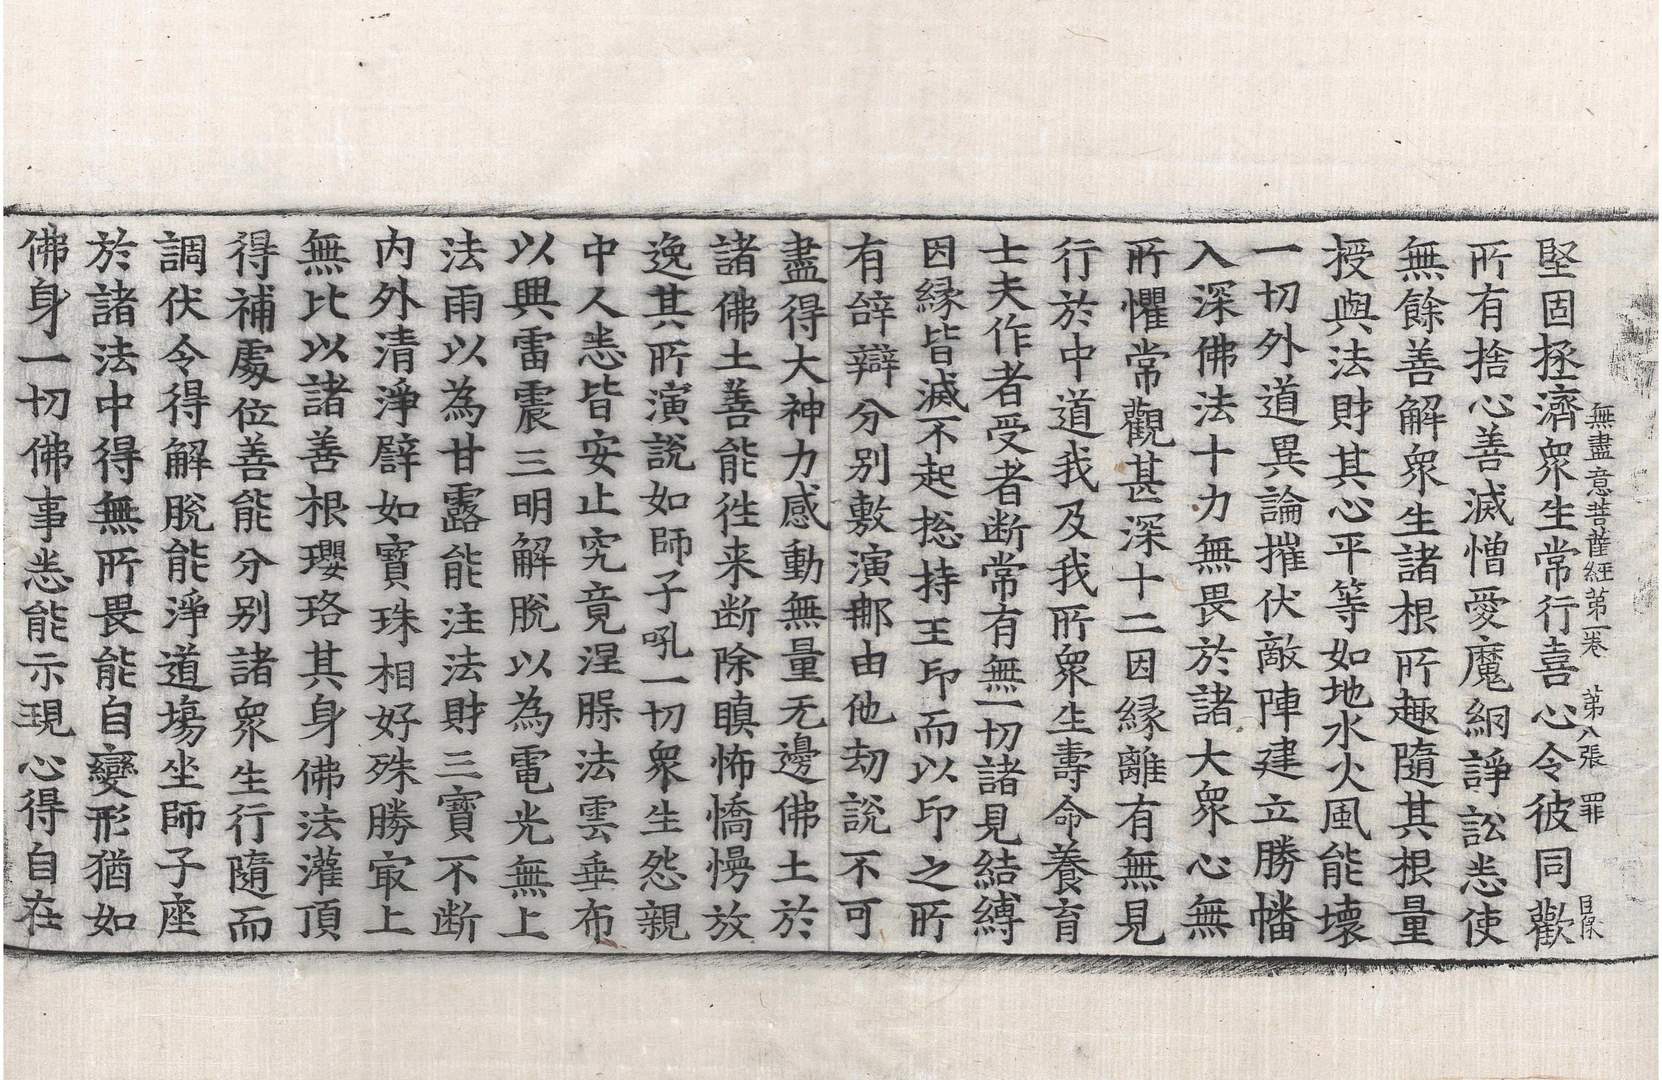 無盡意菩薩經第一卷 第八張 罪
堅固拯濟衆生常行喜心令彼同歡
所有捨心善滅憎愛魔網諍訟悉使
無餘善解衆生諸根所趣隨其根量
授與法財其心平等如地水火風能壞
一切外道異論摧伏敵陣建立勝幡
入深佛法十力無畏於諸大衆心無
所懼常觀甚深十二因緣離有無見
行於中道我及我所衆生壽命養育
士夫作者受者断常有無一切諸見結縛
因緣皆滅不起捴持王印而以印之所
有辝辯分別敷演那由他劫說不可
盡得大神力感動無量无邊佛土於
諸佛土善能徃来断除瞋怖憍慢放
逸其所演說如師子吼一切衆生怨親
中人悉皆安止究竟涅槃法雲垂布
以興雷震三明解脫以為電光無上
法雨以為甘露能注法財三寶不断
内外清淨譬如寶珠相好殊勝冣上
無比以諸善根瓔珞其身佛法灌頂
得補處位善能分別諸衆生行隨而
調伏令得解脫能淨道場坐師子座
於諸法中得無所畏能自變形猶如
佛身一切佛事悉能示現心得自在